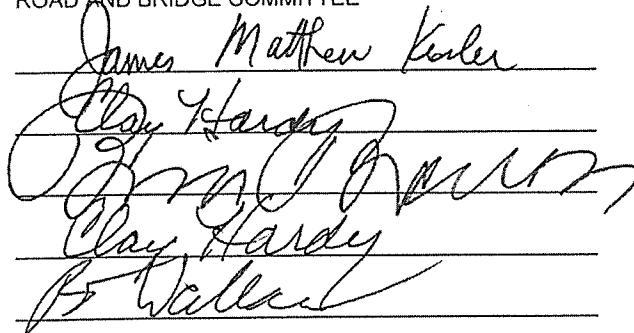 ROAD AND BRIDGE COMMITTEE
James Matthew Kesler
Clay Hardy
Clay Hardy
Wallace